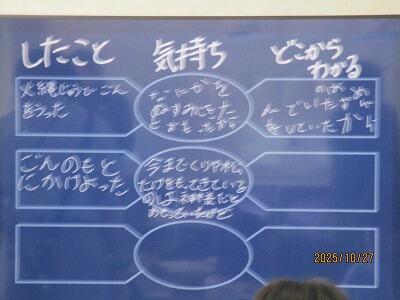 したこと
気持ち
どこから
わかる
火縄じゅうでごん
をうった
なにかを
ぬすみにきた
とおもったから
ごんのもと
にかけよった
今までくりや松
たけをもってきている
のは神様だと
おもっていたけど
2025/10/27